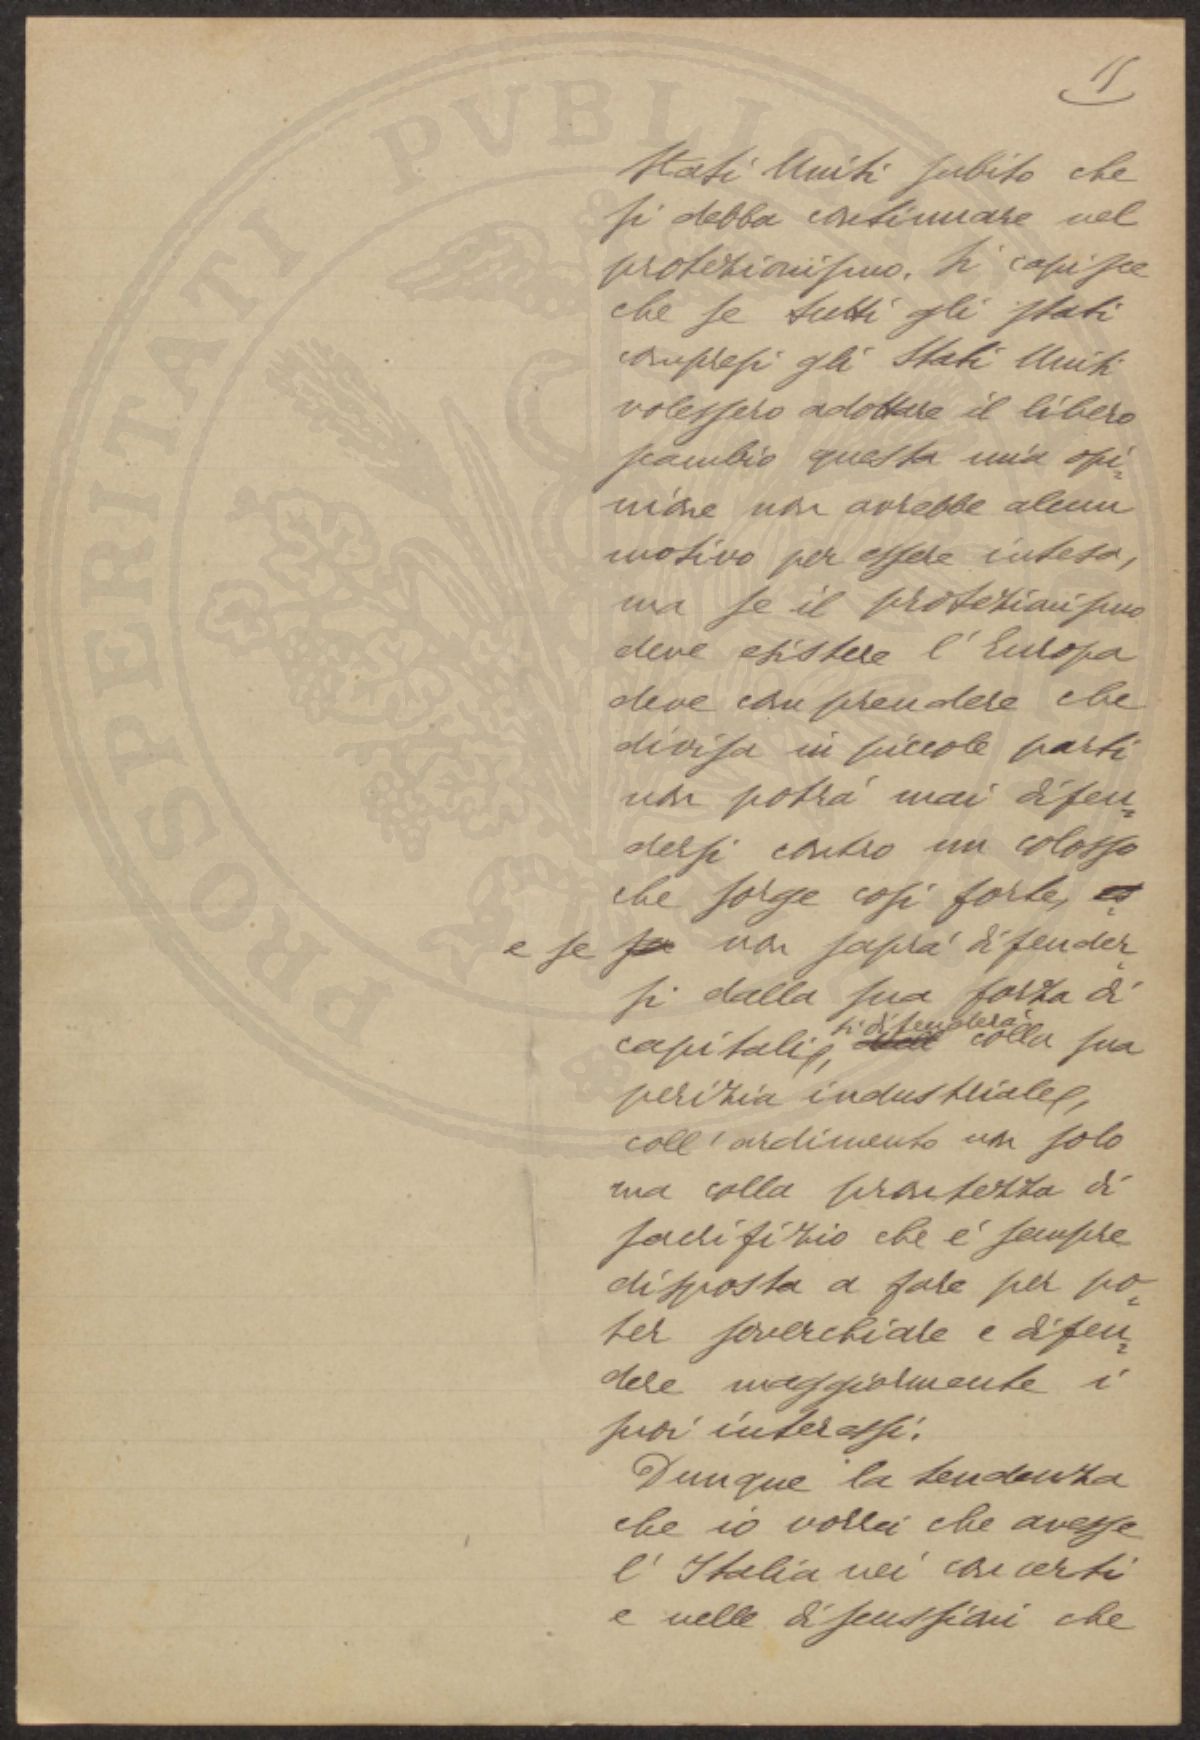 15
Stati Uniti subito che
si debba continuare nel
protezionismo. Si capisce
che se tutti gli stati
compresi gli Stati Uniti
volessero adottare il libero
scambio questa mia opi-
nione non avrebbe alcun
motivo per essere intesa,
ma se il protezionismo
deve esistere l'Europa
deve comprendere che
divisa in piccole parti
non potrà mai difen-
dersi contro un colosso
che sorge così forte,
e se non saprà difender-
si dalla sua forza di
si difenderà
capitali, colla sua
perizia industriale,
coll'ardimento non solo
ma colla prontezza di
sacrifizio che é sempre
disposta a fare per po-
ter soverchiare e difen-
dere maggiormente i
suoi interessi.
Dunque la tendenza
che io vorrei che avesse
l'Italia nei concerti
e nelle discussioni che
PROSPERITATI PVBLIC